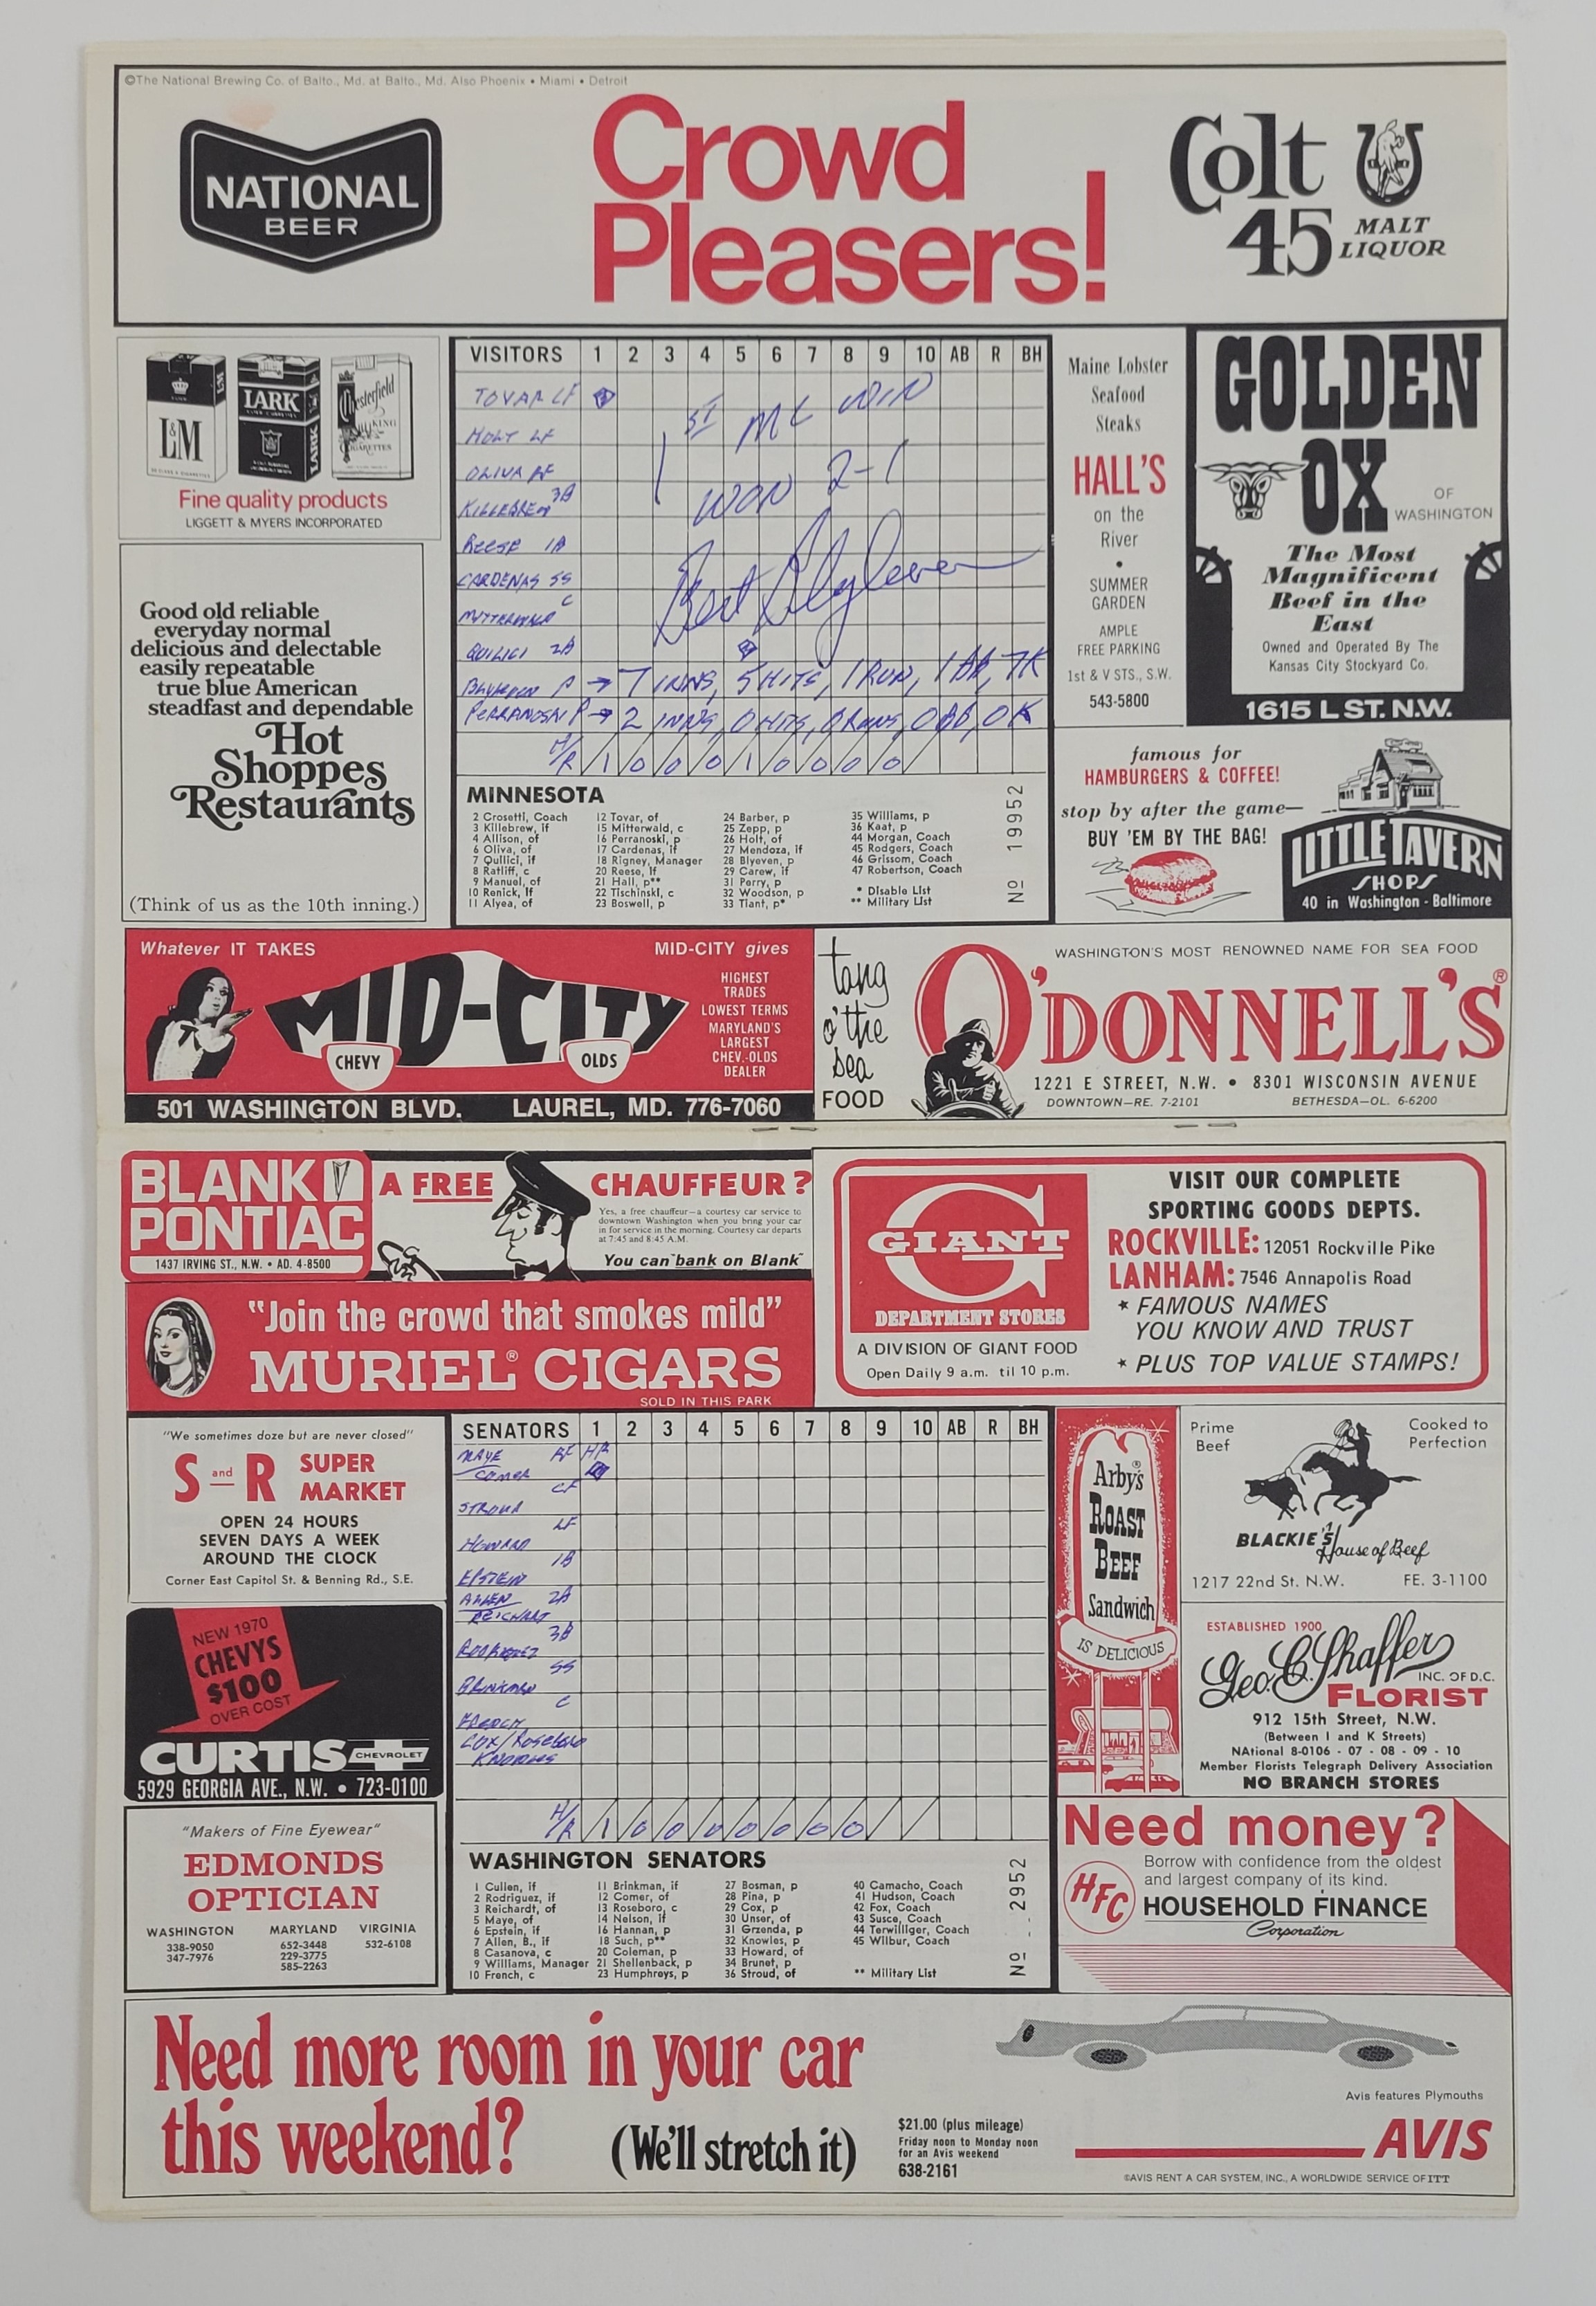 ©The National Brewing Co. of Balto., Md. at Balto., Md. Also Phoenix • Miami • Detroit
NATIONAL
BEER
Crowd
Pleasers!
Colt
45
MALT
LIQUOR
L&M
LARK
Chesterfield
KING
CIGARETTES
Fine quality products
LIGGETT & MYERS INCORPORATED
Good old reliable
everyday normal
delicious and delectable
easily repeatable
true blue American
steadfast and dependable
Hot
Shoppes
Restaurants
(Think of us as the 10th inning.)
VISITORS 1 2 3 4 5 6 7 8 9 10 AB R BH
TOVAR CF
HOLT LF
OLIVA RF
KILLEBREW 3B
REESE 1B
CARDENAS SS
MITTERWALD C
QUILICI 2B
1ST ML WIN
WON 2-1
Bert Blyleven
BLYLEVEN P → 7 INNS, 5 HITS, 1 RUN, 1 BB, 7K
PERRANOSKI P → 2 INNS, 0 HITS, 0 RUNS, 0 BB, 0 K
H/R 1 0 0 0 1 0 0 0 0
MINNESOTA
2 Crosetti, Coach
3 Killebrew, if
4 Allison, of
6 Oliva, of
7 Quilici, if
8 Ratliff, c
9 Manuel, of
10 Renick, if
11 Alyea, of
12 Tovar, of
15 Mitterwald, c
16 Perranoski, p
17 Cardenas, if
18 Rigney, Manager
20 Reese, if
21 Hall, p**
22 Tischinski, c
23 Boswell, p
24 Barber, p
25 Zepp, p
26 Holt, of
27 Mendoza, if
28 Blyeven, p
29 Carew, if
31 Perry, p
32 Woodson, p
33 Tiant, p*
35 Williams, p
36 Kaat, p
44 Morgan, Coach
45 Rodgers, Coach
46 Grissom, Coach
47 Robertson, Coach
* Disable List
** Military List
Nº 19952
Maine Lobster
Seafood
Steaks
HALL'S
on the
River
•
SUMMER
GARDEN
AMPLE
FREE PARKING
1st & V STS., S.W.
543-5800
GOLDEN
OX
OF
WASHINGTON
The Most
Magnificent
Beef in the
East
Owned and Operated By The
Kansas City Stockyard Co.
1615 L ST. N.W.
famous for
HAMBURGERS & COFFEE!
stop by after the game—
BUY 'EM BY THE BAG!
LITTLE TAVERN
SHOPS
40 in Washington - Baltimore
Whatever IT TAKES
MID-CITY
CHEVY
OLDS
MID-CITY gives
HIGHEST
TRADES
LOWEST TERMS
MARYLAND'S
LARGEST
CHEV.-OLDS
DEALER
501 WASHINGTON BLVD. LAUREL, MD. 776-7060
tang
o' the
sea
FOOD
WASHINGTON'S MOST RENOWNED NAME FOR SEA FOOD
O'DONNELL'S®
1221 E STREET, N.W. • 8301 WISCONSIN AVENUE
DOWNTOWN—RE. 7-2101 BETHESDA—OL. 6-6200
BLANK
PONTIAC
1437 IRVING ST., N.W. • AD. 4-8500
A FREE CHAUFFEUR?
Yes, a free chauffeur—a courtesy car service to
downtown Washington when you bring your car
in for service in the morning. Courtesy car departs
at 7:45 and 8:45 A.M.
You can "bank on Blank"
"Join the crowd that smokes mild"
MURIEL® CIGARS
SOLD IN THIS PARK
G
GIANT
DEPARTMENT STORES
A DIVISION OF GIANT FOOD
Open Daily 9 a.m. til 10 p.m.
VISIT OUR COMPLETE
SPORTING GOODS DEPTS.
ROCKVILLE: 12051 Rockville Pike
LANHAM: 7546 Annapolis Road
* FAMOUS NAMES
YOU KNOW AND TRUST
* PLUS TOP VALUE STAMPS!
"We sometimes doze but are never closed"
S and R SUPER
MARKET
OPEN 24 HOURS
SEVEN DAYS A WEEK
AROUND THE CLOCK
Corner East Capitol St. & Benning Rd., S.E.
NEW 1970
CHEVYS
$100
OVER COST
CURTIS
CHEVROLET
5929 GEORGIA AVE., N.W. • 723-0100
"Makers of Fine Eyewear"
EDMONDS
OPTICIAN
WASHINGTON
338-9050
347-7976
MARYLAND
652-3448
229-3775
585-2263
VIRGINIA
532-6108
SENATORS 1 2 3 4 5 6 7 8 9 10 AB R BH
MAYE RF HR
COMER
CF
STROUD
LF
HOWARD
1B
EPSTEIN
ALLEN 2B
REICHART
3B
RODRIGUEZ
SS
BRINKMAN
C
FRENCH
COX/ROSEBORO
KNOWLES
H/R 1 0 0 0 0 0 0 0
WASHINGTON SENATORS
1 Cullen, if
2 Rodriguez, if
3 Reichardt, of
5 Maye, of
6 Epstein, if
7 Allen, B., if
8 Casanova, c
9 Williams, Manager
10 French, c
11 Brinkman, if
12 Comer, of
13 Roseboro, c
14 Nelson, if
16 Hannan, p
18 Such, p**
20 Coleman, p
21 Shellenback, p
23 Humphreys, p
27 Bosman, p
28 Pina, p
29 Cox, p
30 Unser, of
31 Grzenda, p
32 Knowles, p
33 Howard, of
34 Brunet, p
36 Stroud, of
40 Camacho, Coach
41 Hudson, Coach
42 Fox, Coach
43 Susce, Coach
44 Terwilliger, Coach
45 Wilbur, Coach
** Military List
Nº 2952
Arby's®
ROAST
BEEF
Sandwich
IS DELICIOUS
Prime
Beef
Cooked to
Perfection
BLACKIE'S
House of Beef
1217 22nd St. N.W. FE. 3-1100
ESTABLISHED 1900
Geo. C. Shaffer
INC. OF D.C.
FLORIST
912 15th Street, N.W.
(Between I and K Streets)
NAtional 8-0106 - 07 - 08 - 09 - 10
Member Florists Telegraph Delivery Association
NO BRANCH STORES
Need money?
HFC
Borrow with confidence from the oldest
and largest company of its kind.
HOUSEHOLD FINANCE
Corporation
Need more room in your car
this weekend?
(We'll stretch it)
$21.00 (plus mileage)
Friday noon to Monday noon
for an Avis weekend
638-2161
Avis features Plymouths
AVIS
©AVIS RENT A CAR SYSTEM, INC., A WORLDWIDE SERVICE OF ITT